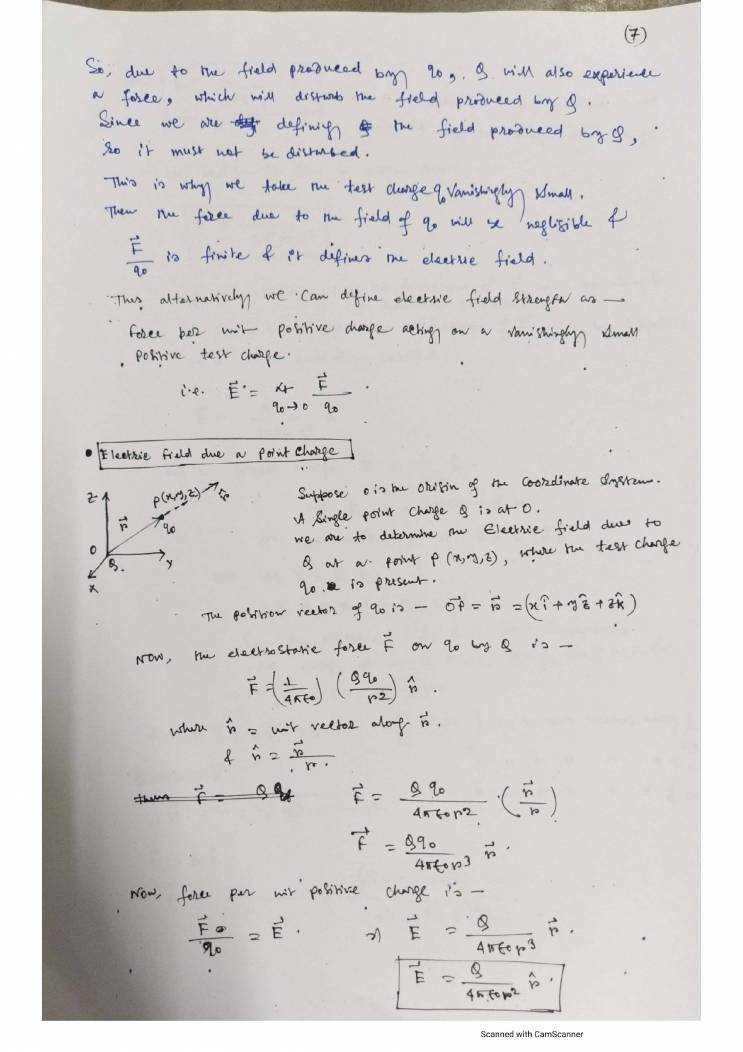 (7)
So, due to the field produced by q₀, Q will also experience
a force, which will disturb the field produced by Q.
Since we are defining the field produced by Q,
so it must not be disturbed.
This is why we take the test charge q₀ vanishingly small.
Then the force due to the field of q₀ will be negligible &
F⃗/q₀ is finite & it defines the electric field.
Thus alternatively, we can define electric field strength as —
force per unit positive charge acting on a vanishingly small
positive test charge.
i.e. E⃗ = Lt q₀→0 F⃗/q₀ .
• Electric field due a point charge
Z P(x,y,z) r̂
r⃗ q₀
O Q. Y
X
Suppose O is the origin of the coordinate system.
A single point charge Q is at O.
we are to determine the Electric field due to
Q at a point P (x,y,z), where the test charge
q₀ is present.
The position vector of q₀ is — OP⃗ = r⃗ = (xî + yĵ + zk̂)
Now, the electrostatic force F⃗ on q₀ by Q is —
F⃗ = (1/4πε₀) (Qq₀/r²) r̂ .
where r̂ = unit vector along r⃗.
& r̂ = r⃗/r .
F⃗ = Q q₀/4πε₀r² · (r⃗/r)
F⃗ = Qq₀/4πε₀r³ r⃗ .
Now, force per unit positive charge is —
F⃗/q₀ = E⃗ . ⇒ E⃗ = Q/4πε₀r³ r⃗ .
E⃗ = Q/4πε₀r² r̂ .
Scanned with CamScanner